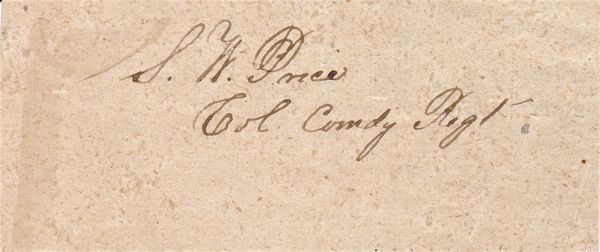 S. W. Price
Col Comdy Regt